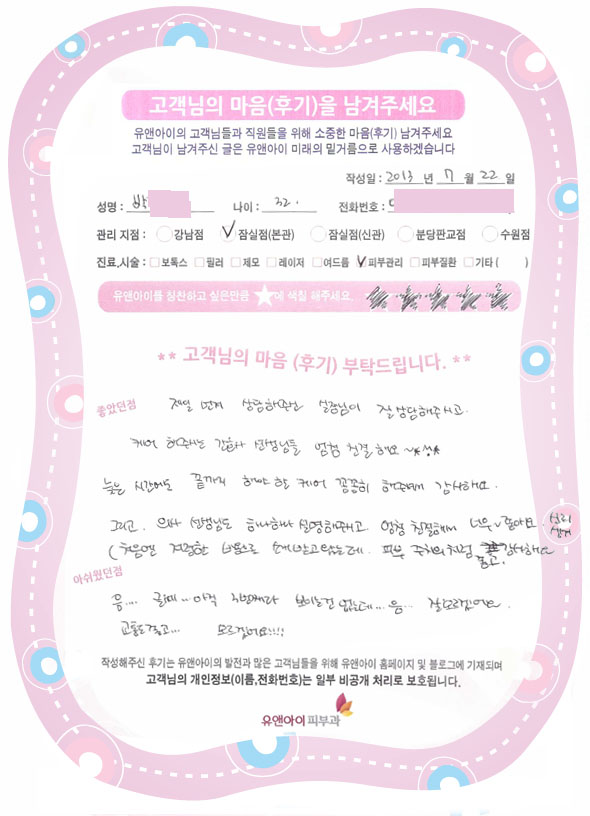 고객님의 마음(후기)을 남겨주세요
유앤아이의 고객님들과 직원들을 위해 소중한 마음(후기) 남겨주세요
고객님이 남겨주신 글은 유앤아이 미래의 밑거름으로 사용하겠습니다
작성일 : 2013 년 7 월 22 일
성명 : 박 나이 : 32. 전화번호 :
관리 지점 : 강남점 잠실점(본관) 잠실점(신관) 분당판교점 수원점
진료,시술 : 보톡스 필러 제모 레이저 여드름 피부관리 피부질환 기타 ( )
유앤아이를 칭찬하고 싶은만큼 ★에 색칠 해주세요.
** 고객님의 마음 (후기) 부탁드립니다. **
좋았던점 제일 먼저 상담해주신 실장님이 잘 상담해주시고.
케어 해주시는 간호사 선생님들 엄청 친절해요
늦은 시간에도 끝까지 해야 할 케어 꼼꼼히 해주셔서 감사해요.
그리고. 의사 선생님도 하나하나 설명해주시고. 엄청 친절해서 너무 좋아요.
(처음엔 걱정한 마음으로 피부 주치의처럼 좋고. 감사해요
아쉬웠던점
음.... 글쎄... 아직 보이는건 없는데... 음... 잘모르겠어요.
교통도 좋고... 모르겠어요!!!!
작성해주신 후기는 유앤아이의 발전과 많은 고객님들을 위해 유앤아이 홈페이지 및 블로그에 기재되며
고객님의 개인정보(이름,전화번호)는 일부 비공개 처리로 보호됩니다.
유앤아이피부과